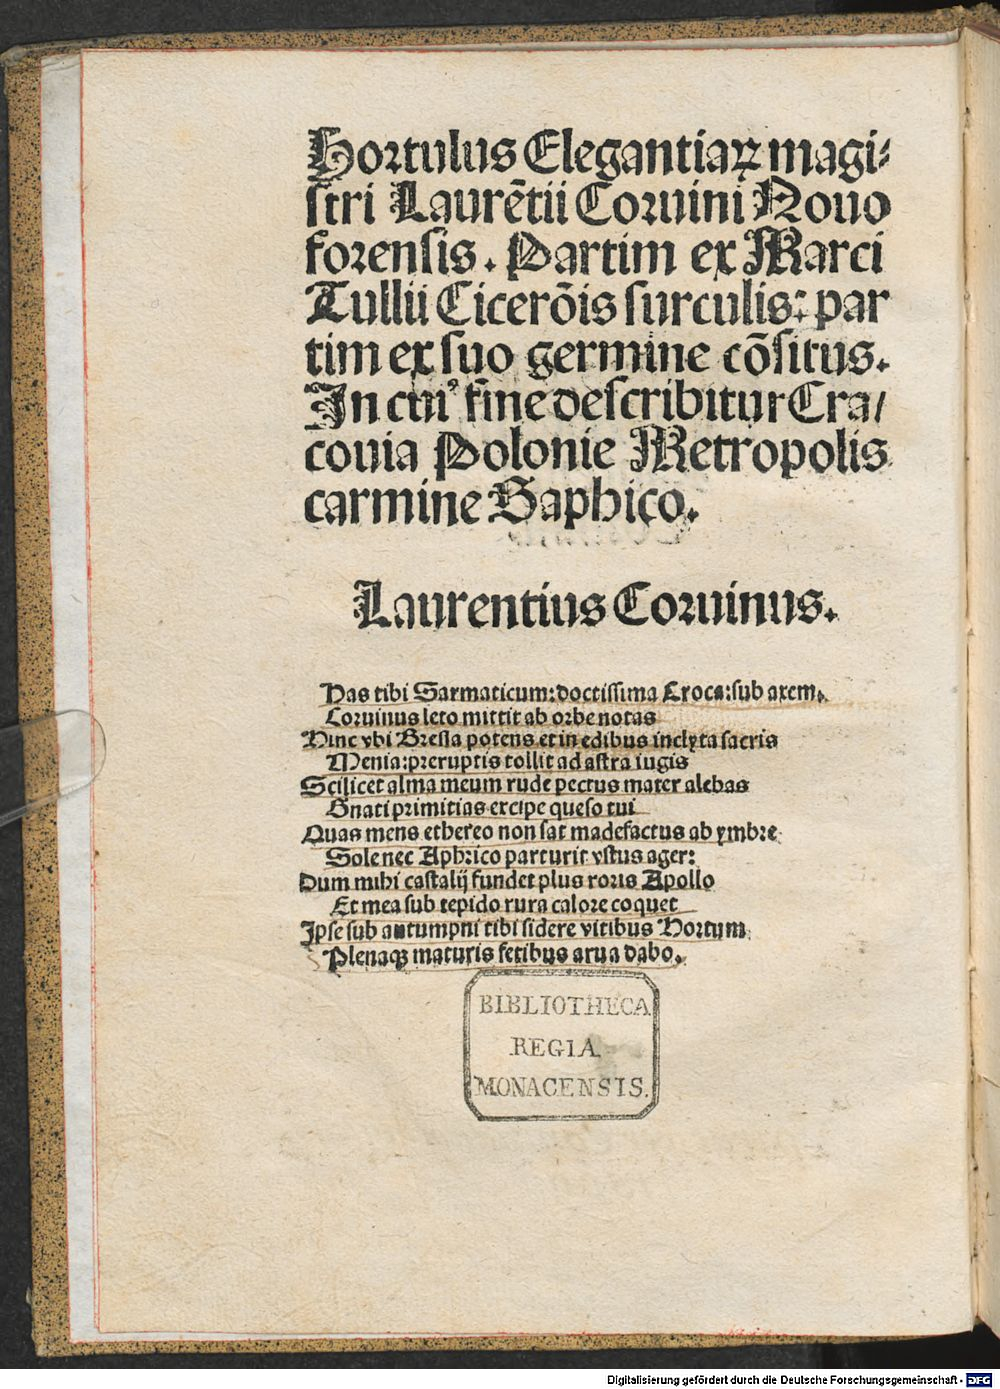 Hortulus Elegantiaꝝ magi⸗
stri Laurētii Coruini Nouo
forensis. Partim ex Marci
Tullii Cicerōis surculis: par
tim ex suo germine cōsitus.
In cuiꝰ fine describitur Cra/
couia Polonie Metropolis
carmine Saphico.
Laurentius Coruinus.
Has tibi Sarmaticum: doctissima Croca: sub axem.
Coruinus leto mittit ab orbe notas
Hinc vbi Bresla potens et in edibus inclyta sacris
Menia: preruptis tollit ad astra iugis
Scilicet alma meum rude pectus mater alebas
Gnati primitias excipe queso tui
Quas mens ethereo non sat madefactus ab ymbre
Sole nec Aphrico parturit vstus ager:
Dum mihi castalij fundet plus roris Apollo
Et mea sub tepido rura calore coquet
Ipse sub autumpni tibi sidere vitibus Hortum
Plenaqꝫ maturis fetibus arua dabo.
BIBLIOTHECA
REGIA
MONACENSIS.
Digitalisierung gefördert durch die Deutsche Forschungsgemeinschaft - DFG